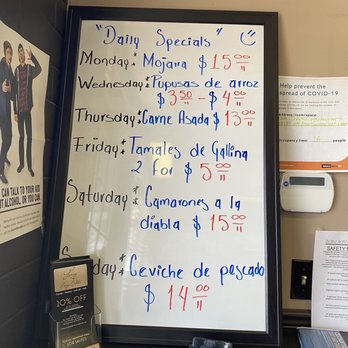 "Daily Specials"
Monday: Mojara $15.00
Wednesday: Pupusas de arroz
$3.50 - $4.00
Thursday: Carne Asada $13.00
Friday: Tamales de Gallina
2 For $5.00
Saturday: Camarones a la
diabla $15.00
day: Ceviche de pescado
$14.00
Help prevent the
spread of COVID-19
people
CAN TALK TO YOUR KID
T ALCOHOL. OR YOU CAN
20% OFF
SAFETY